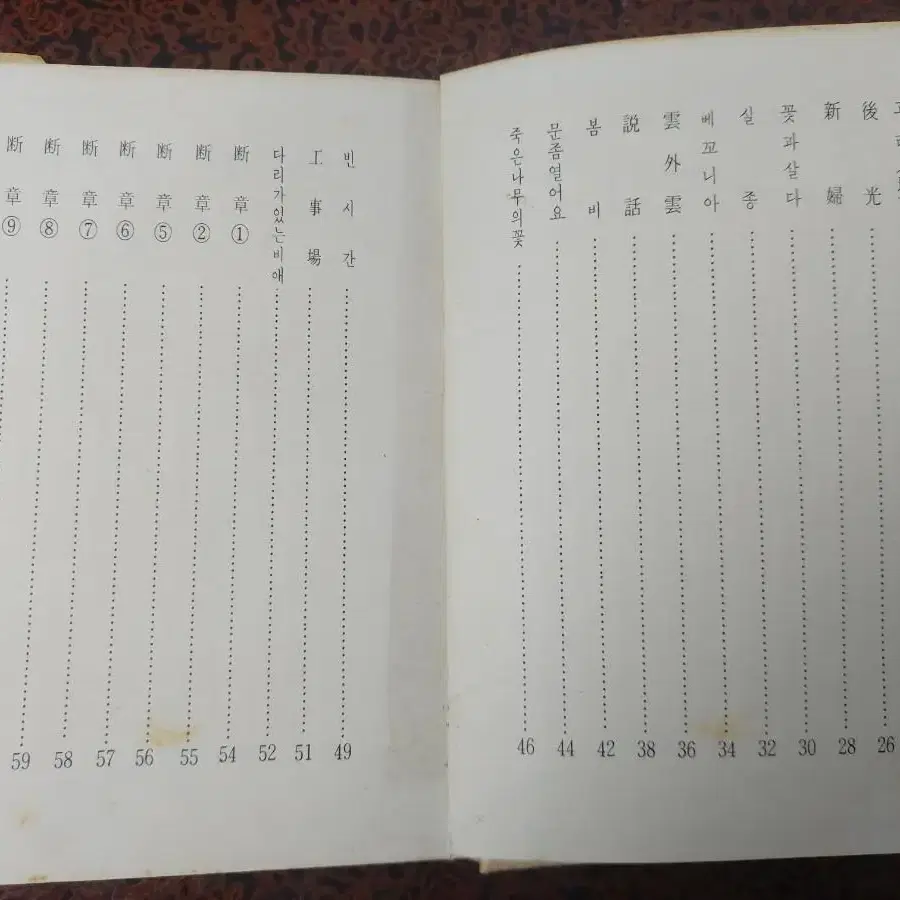 後光 26
新婦 28
꽃과살다 30
실종 32
베꼬니아 34
雲外雲 36
説話 38
봄비 42
문좀열어요 44
죽은나무의꽃 46
빈시간 49
工事場 51
다리가있는비애 52
断章① 54
断章② 55
断章⑤ 56
断章⑥ 57
断章⑦ 58
断章⑧ 59
断章⑨